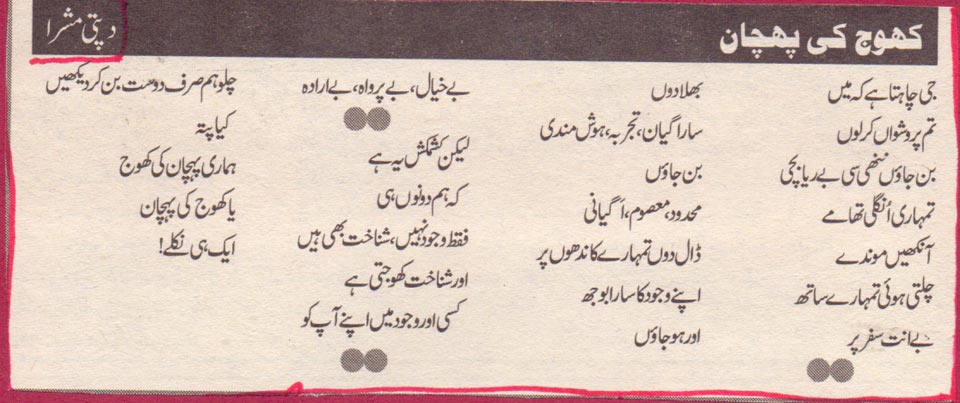 کھوج کی پہچان
دپتی مشرا
جی چاہتا ہے کہ میں
تم پر وشواس کرلوں
بن جاؤں ننھی سی بے ریا بچی
تمہاری اُنگلی تھامے
آنکھیں موندے
چلتی ہوئی تمہارے ساتھ
بے انت سفر پر
بھلا دوں
سارا گیان، تجربہ، ہوش مندی
بن جاؤں
محدود، معصوم، اَگیانی
ڈال دوں تمہارے کاندھوں پر
اپنے وجود کا سارا بوجھ
اور ہو جاؤں
بے خیال، بے پرواہ، بے ارادہ
لیکن کشمکش یہ ہے
کہ ہم دونوں ہی
فقط وجود نہیں، شناخت بھی ہیں
اور شناخت کھوجتی ہے
کسی اور وجود میں اپنے آپ کو
چلو ہم صرف دوست بن کر دیکھیں
کیا پتہ
ہماری پہچان کی کھوج
یا کھوج کی پہچان
ایک ہی نکلے!